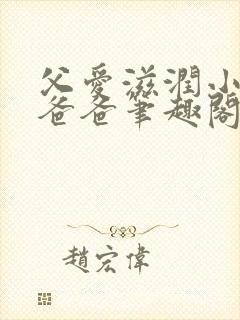 父愛滋潤小
爸爸筆趣閣
趙宏偉